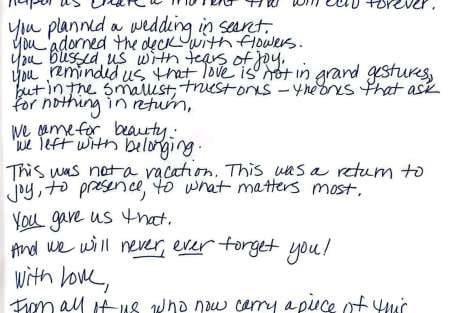 helped us create a moment that will echo forever.
You planned a wedding in secret.
You adorned the deck with flowers.
You blessed us with tears of joy.
You reminded us that love is not in grand gestures,
but in the smallest, truest ones – the ones that ask
for nothing in return.
We came for beauty.
We left with belonging.
This was not a vacation. This was a return to
joy, to presence, to what matters most.
You gave us that.
And we will never, ever forget you!
With Love,
From all of us who now carry a piece of this